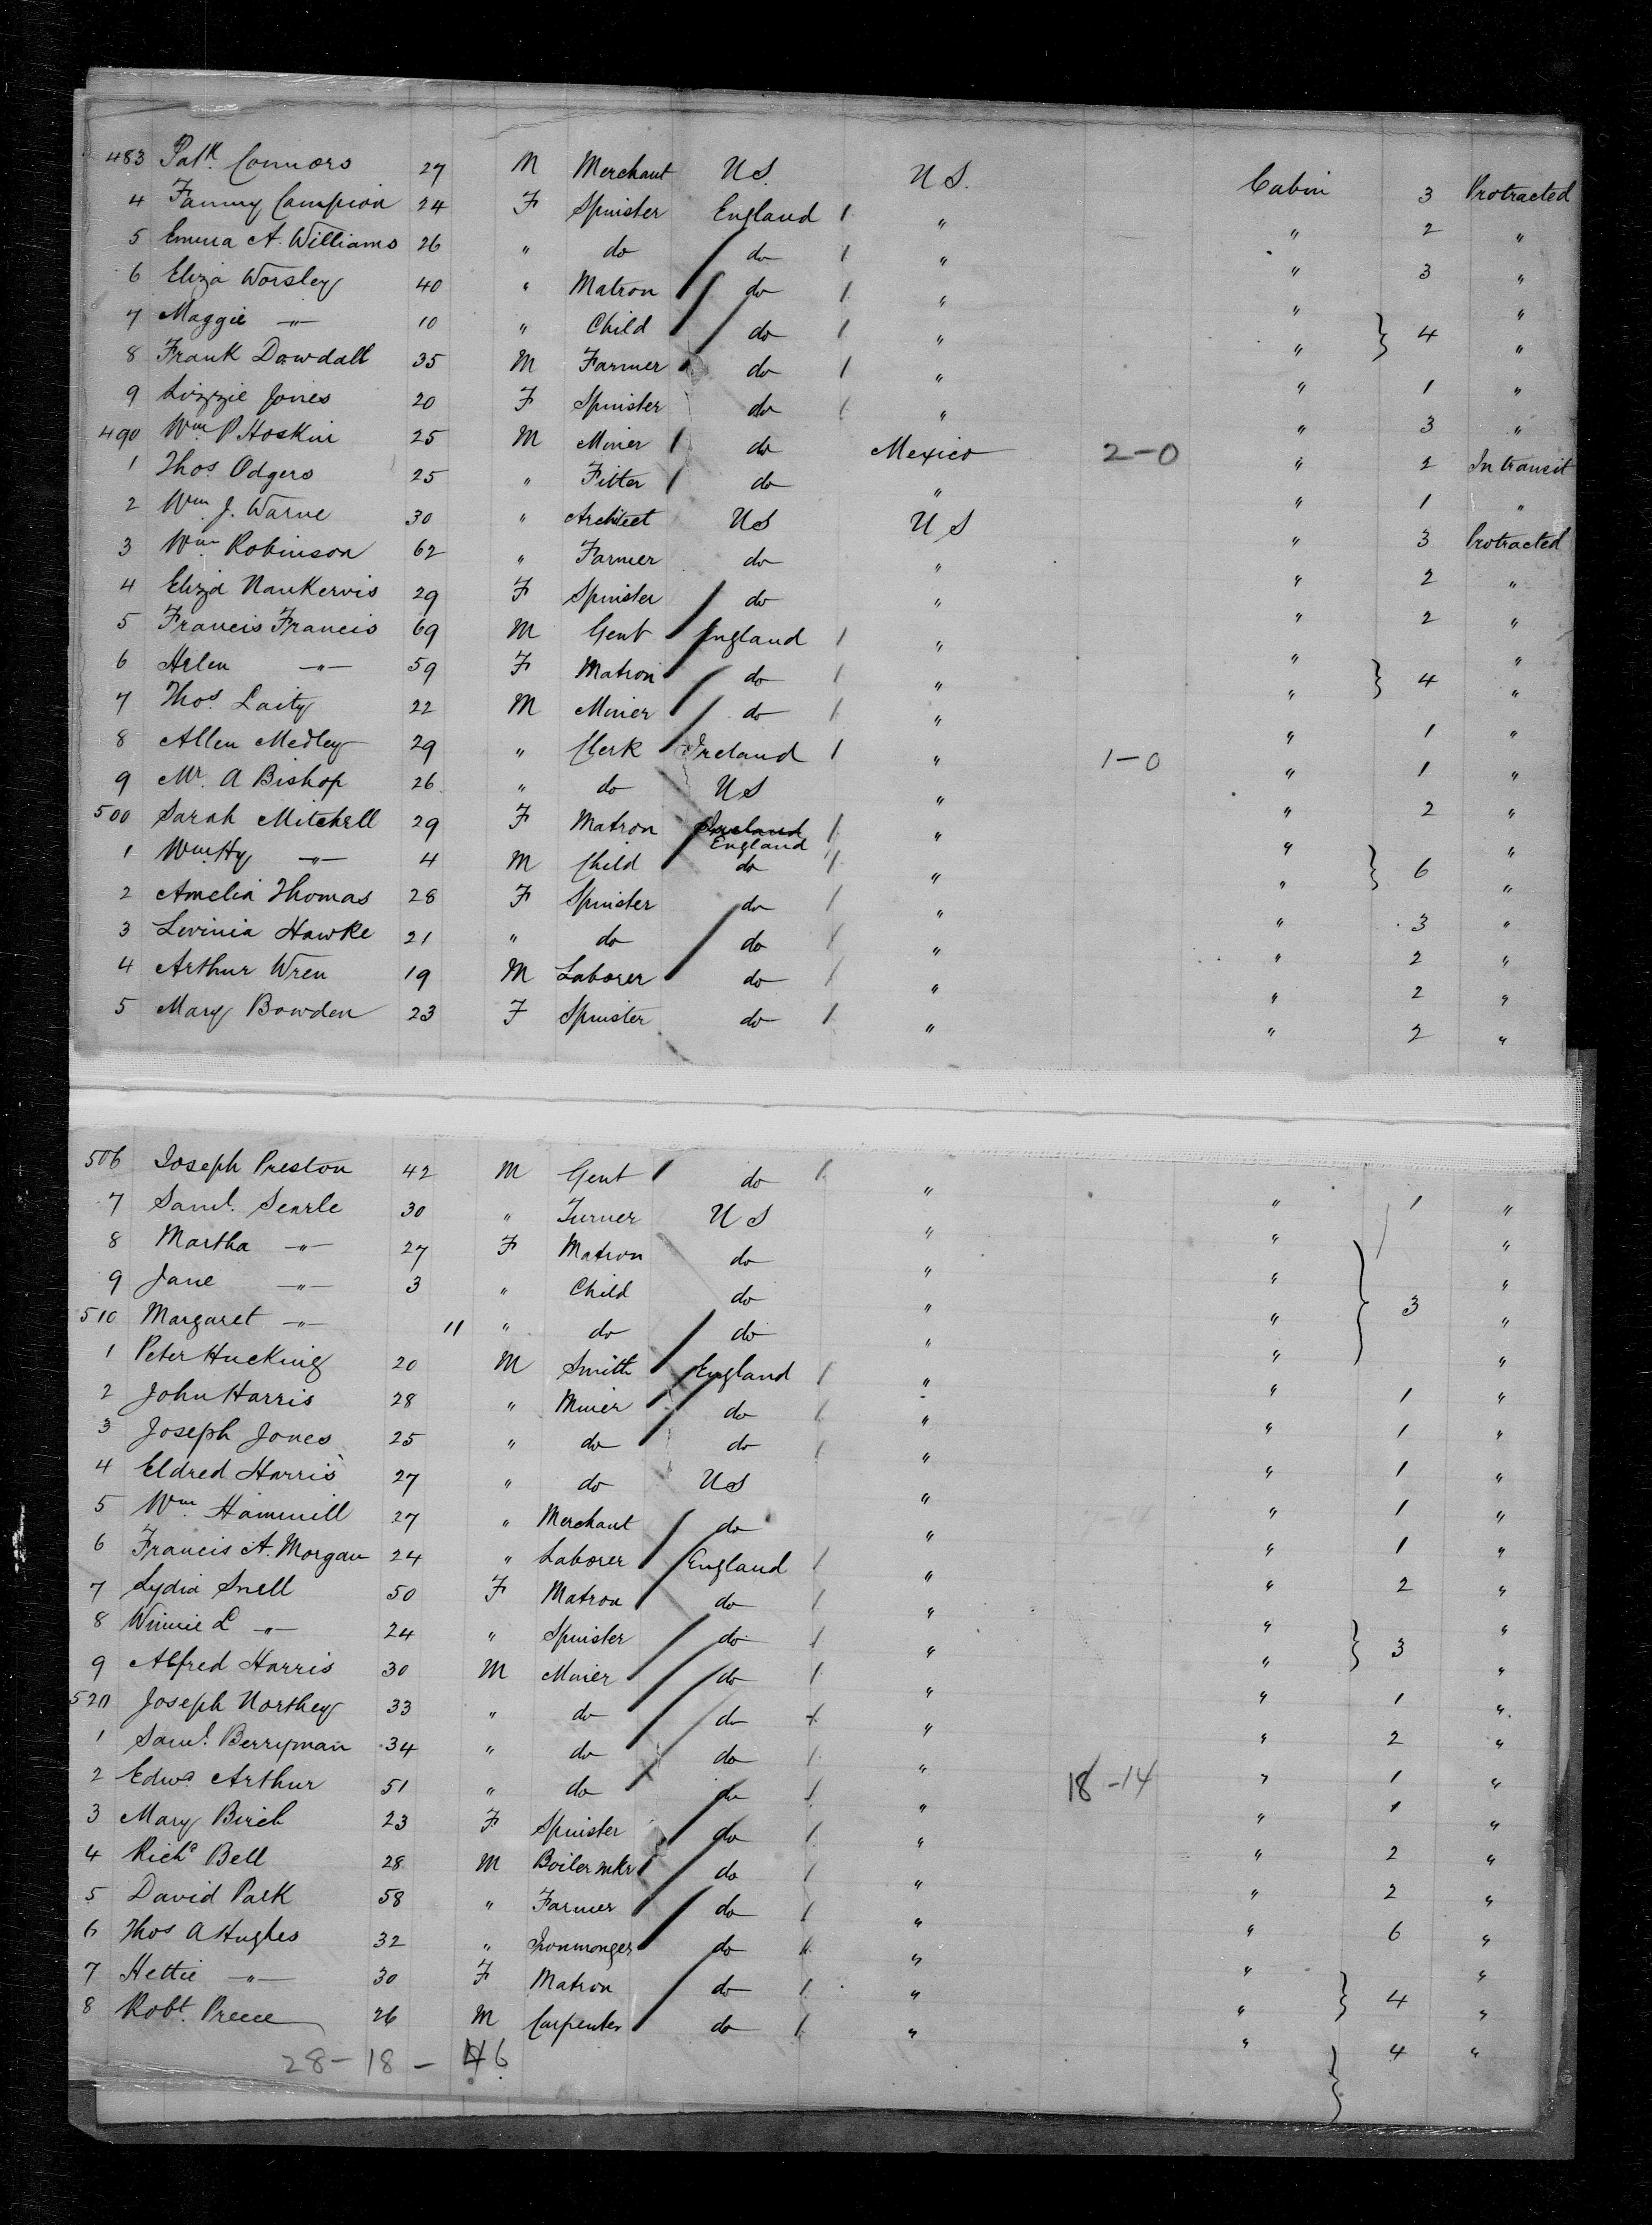 483 Patk. Connors 27 M Merchant U S. U S. Cabin 3 Protracted
4 Fanny Campion 24 F Spinster England / " " 2 "
5 Emma A. Williams 26 " do do / " " 3 "
6 Eliza Worsley 40 " Matron do / " " "
7 Maggie —"— 10 " Child do / " " } 4 "
8 Frank Dowdall 35 M Farmer do / " " 1 "
9 Lizzie Jones 20 F Spinster do / " " 3 "
490 Wm. P Hoskin 25 M Miner / do Mexico 2-0 " 2 In transit
1 Thos. Odgers 25 " Fitter / do " " 1 "
2 Wm. J. Warne 30 " Architect US U S " 3 Protracted
3 Wm. Robinson 62 " Farmer do " " 2 "
4 Eliza Nankervis 29 F Spinster do " " 2 "
5 Francis Francis 69 M Gent England / " " "
6 Helen —"— 59 F Matron do / " " } 4 "
7 Thos. Laity 22 M Miner do / " " 1 "
8 Allen Medley 29 " Clerk Ireland / " 1-0 " 1 "
9 Mr. A Bishop 26 " do US " " 2 "
500 Sarah Mitchell 29 F Matron Ireland / " " "
England
1 Wm Hy —"— 4 M Child do / " " } 6 "
2 Amelia Thomas 28 F Spinster do / " " 3 "
3 Levinia Hawke 21 " do do / " " 2 "
4 Arthur Wren 19 M Laborer do / " " 2 "
5 Mary Bowden 23 F Spinster do / " " 2 "
506 Joseph Preston 42 M Gent / do / " " 1 "
7 Saml. Searle 30 " Turner U S " " "
8 Martha —"— 27 F Matron do " " "
9 Jane —"— 3 " Child do " " } 3 "
510 Margaret —"— 11 " do do " " "
1 Peter Hucking 20 M Smith England / " " 1 "
2 John Harris 28 " Miner do / " " 1 "
3 Joseph Jones 25 " do do / " " 1 "
4 Eldred Harris 27 " do US " " 1 "
5 Wm. Hammill 27 " Merchant do " " 1 "
6 Francis A. Morgan 24 " Laborer England / " " 2 "
7 Lydia Snell 50 F Matron do / " " "
8 Winnie L —"— 24 " Spinster do / " " } 3 "
9 Alfred Harris 30 M Miner do / " " 1 "
520 Joseph Northey 33 " do do / " " 2 "
1 Saml. Berryman 34 " do do / " " 1 "
2 Edwd. Arthur 51 " do do / " 18-14 " 1 "
3 Mary Birch 23 F Spinster do / " " 2 "
4 Richd Bell 28 M Boiler mkr do / " " 2 "
5 David Park 58 " Farmer do / " " 6 "
6 Thos A Hughes 32 " Ironmonger do / " " "
7 Hettie —"— 30 F Matron do / " " } 4 "
8 Robt. Preece 26 M Carpenter do / " " } 4 "
28-18- 46